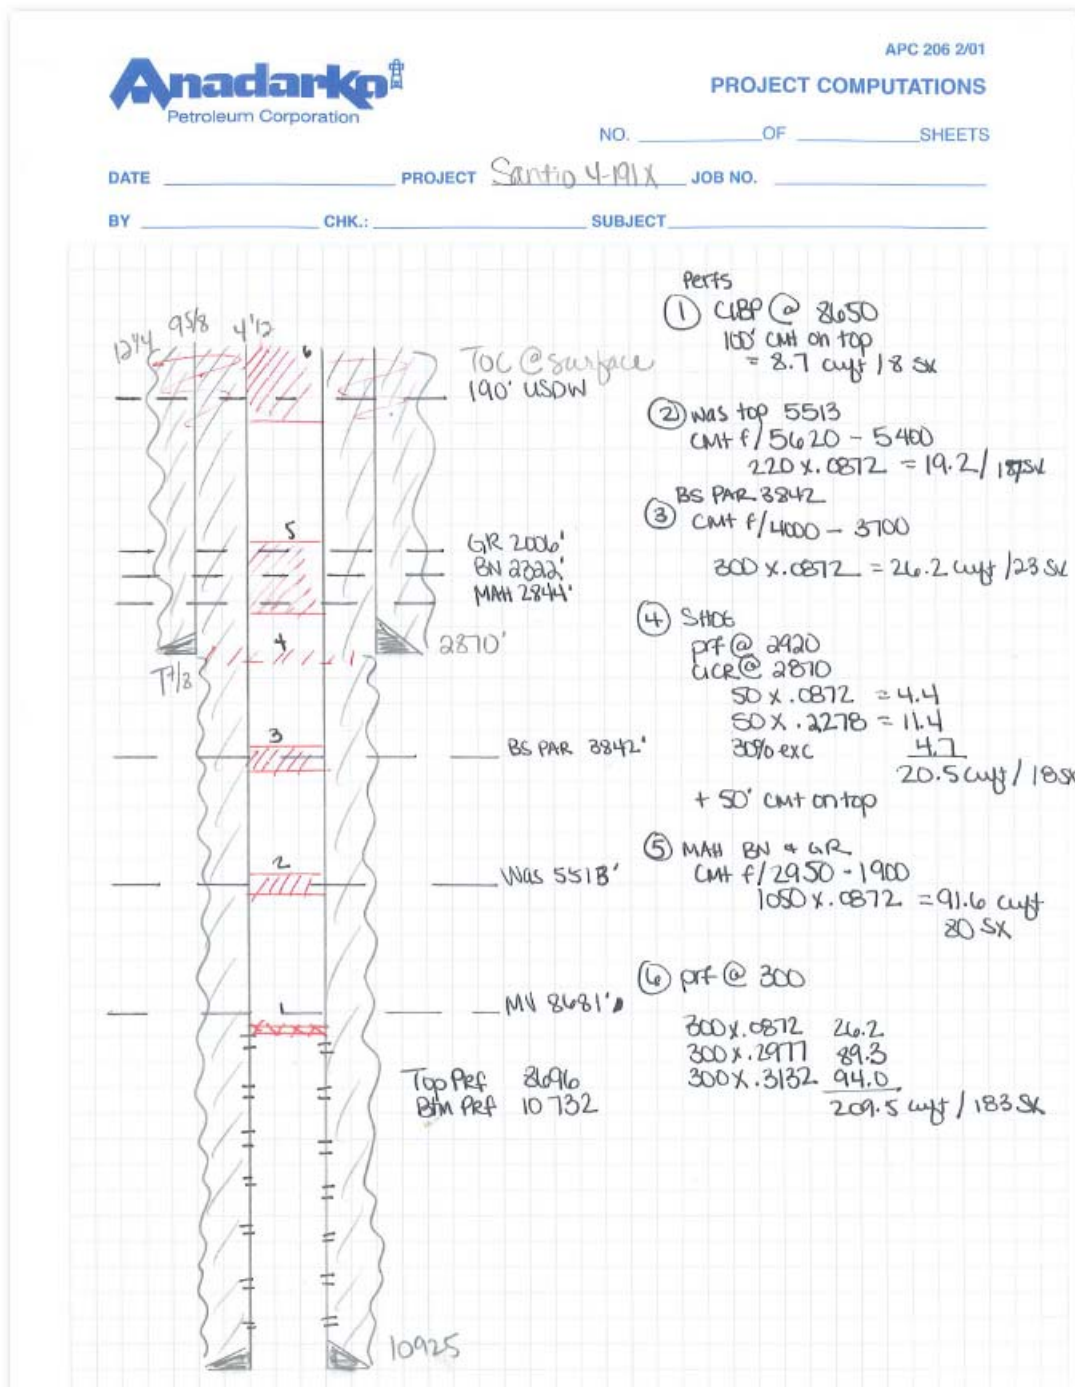 APC 206 2/01
Anadarko
Petroleum Corporation
PROJECT COMPUTATIONS
NO. OF SHEETS
DATE PROJECT Santio 4-191X JOB NO.
BY CHK.: SUBJECT
12 1/4 9 5/8 4 1/2
6
TOC @ surface
190' USDW
5
GR 2006'
BN 2322'
MAH 2844'
4
2870'
7 7/8
3
BS PAR 3842'
2
Was 5513'
1
MV 8681'
Top Prf 8696
Btm Prf 10732
10925
Perfs
① CIBP @ 8650
100' CMT on top
= 8.7 cuft / 8 sx
② Was top 5513
CMT f/ 5620 - 5400
220 x .0872 = 19.2 / sx
BS PAR 3842
③ CMT f/ 4000 - 3700
300 x .0872 = 26.2 cuft / 23 sx
④ SHOE
prf @ 2920
CICR @ 2870
50 x .0872 = 4.4
50 x .2278 = 11.4
30% exc 4.7
20.5 cuft / 18 sx
+ 50' CMT on top
⑤ MAH BN + GR
CMT f/ 2950 - 1900
1050 x .0872 = 91.6 cuft
80 SX
⑥ prf @ 300
300 x .0872 26.2
300 x .2977 89.3
300 x .3132 94.0
209.5 cuft / 183 sx